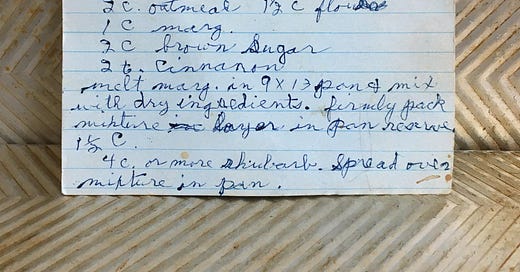 2 C. oatmeal 1½ C flour
1 C marg.
2 C brown Sugar
2 t. Cinnanon
melt marg. in 9 x 13 pan & mix
with dry ingredients. firmly pack
mixture layer in pan reserve
1½ C.
4 c. or more rhubarb. Spread over
mixture in pan.